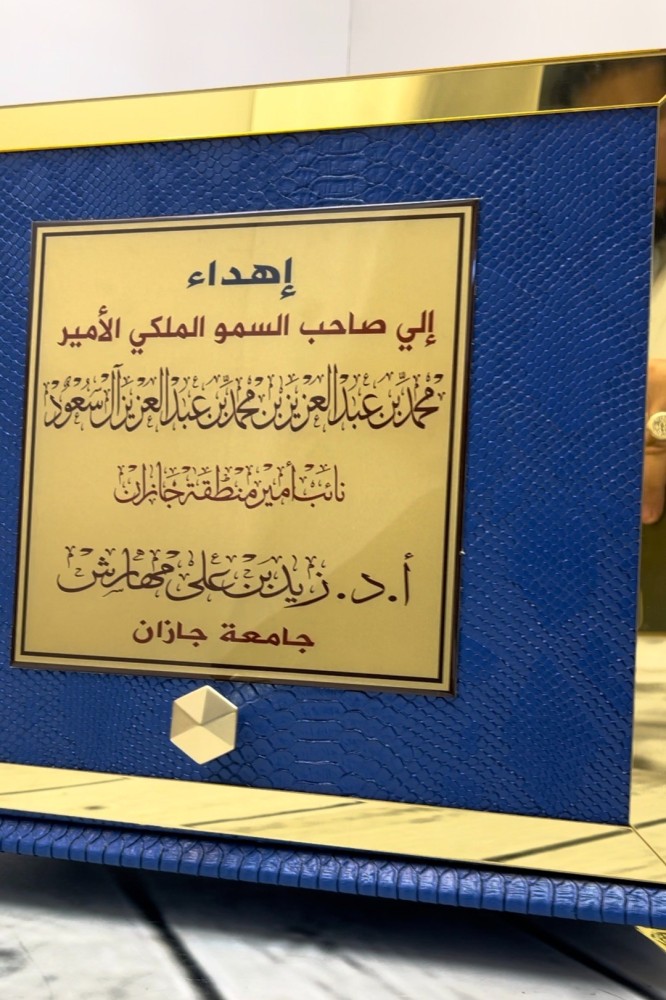 إهداء
إلي صاحب السمو الملكي الأمير
محمد بن عبدالعزيز بن محمد بن عبدالعزيز آل سعود
نائب أمير منطقة جازان
أ.د. زيد بن علي مهارش
جامعة جازان